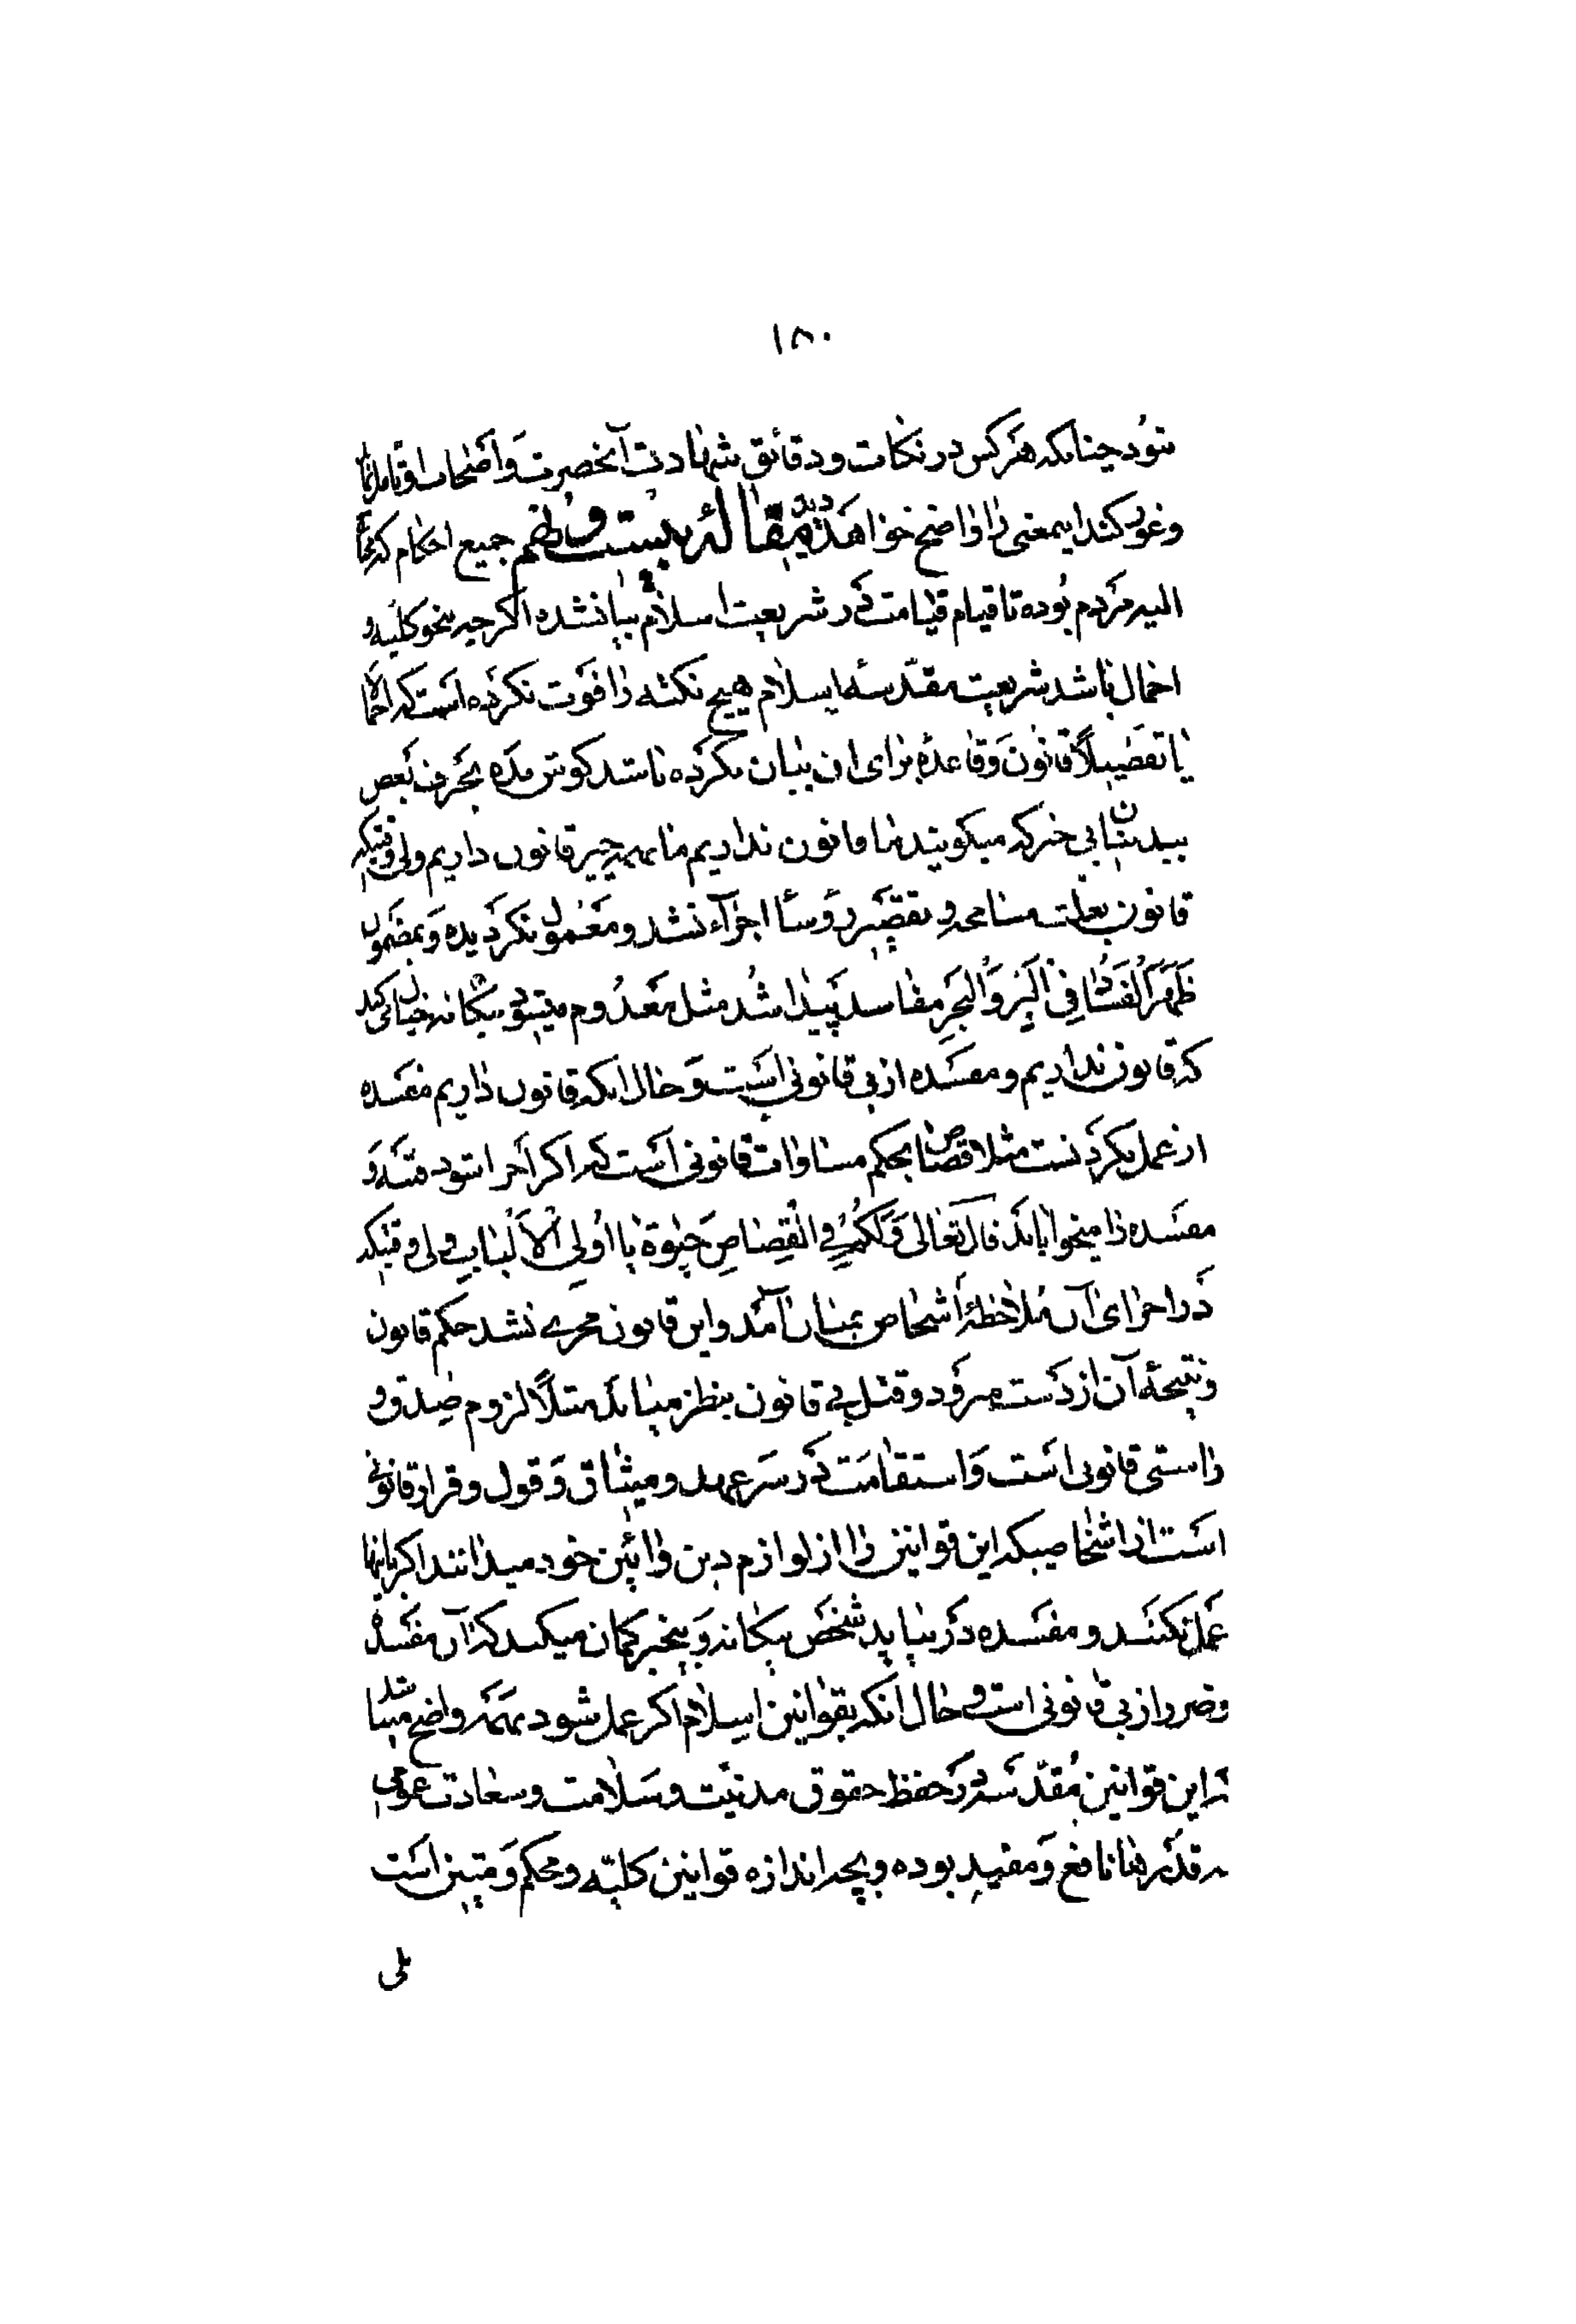 ۱۸۰
شود چنانکه هرکس در نکات و دقائق شهادت آنحضرت و اصحاب او تامل نماید
و غور کند اینمعنی را واضح خواهد دید مقاله بیست و نهم جمیع احکام که محتاج
الیه مردم بوده تا قیام قیامت در شریعت اسلام بیان شده اگر چه بنحو کلیه و
اجمال باشد شریعت مقدسه اسلام هیچ نکته را فوت نکرده است که اجمالا
یا تفصیلاً قانون و قاعده برای ان بیان نکرده باشد کوش مده بحرف بعض
بیدینان بی خبر که میکویند ما قانون نداریم ما همه چیز قانون داریم ولی وقتیکه
قانون بعلت مسامحه و تقصیر رؤسا اجراء نشد و معمول نکردیده و بمضمون
ظَهَرَ الْفَسٰادُ فِی الْبَرِّ وَ الْبَحْرِ مفاسد پیدا شد مثل معدوم میشود بیکانه خیال میکند
که قانون نداریم و مفسده از بی قانونی است و حال انکه قانون داریم مفسده
از عمل نکردنست مثلا قصاص بحکم مساوات قانونی است که اکر اجرا شود فتنه و
مفسده را میخواباند قال تعالی وَ لَکُمْ فِی الْقِصٰاصِ حَیٰوةٌ یٰا اُولِی الْاَلْبٰابِ ولی وقتیکه
در اجرای آن ملاحظهٔ اشخاص بمیان آمد و این قانون مجری نشد حکم قانون
و نتیجهٔ آن از دست میرود و قتل بی قانون بنظر میاید مثلاً لزوم صدق و
راستی قانونی است و استقامت در سر عهد و میثاق و قول و قرار قانونی
است از اشخاصیکه این قوانین را از لوازم دین و ائین خود میدانند اکر باینها
عمل نکنند و مفسده در بیاید شخص بیکانه و بیخبر کمان میکند که آن مفسده
و ضرر از بی قانونی است و حال انکه بقوانین اسلام اکر عمل شود بهمه واضح میباشد
که این قوانین مقدسه در حفظ حقوق مدنیت و سلامت و سعادت عمومی
چه قدرها نافع و مفید بوده و بچه اندازه قوانین کلیه و محکم و متین است
بلی